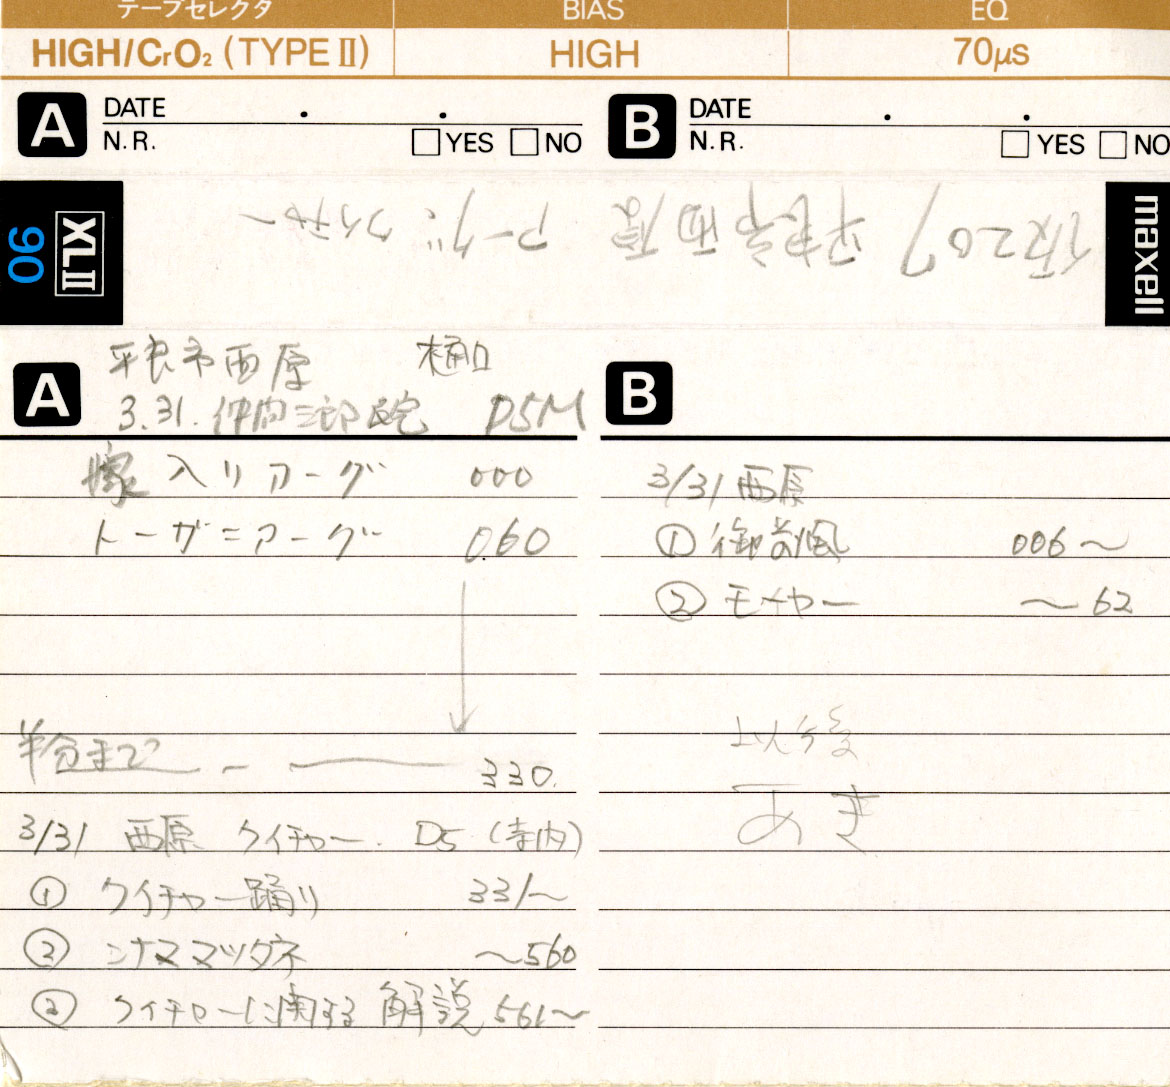 テープセレクタ BIAS EQ
HIGH/CrO₂ (TYPE II) HIGH 70μs
A DATE . . B DATE . .
N.R. □YES □NO N.R. □YES □NO
XLII 90
maxell
仮207 平良市西原 アーグ、クイチャー
A 平良市西原 樋口
3.31. 仲間三郎氏宅 D5M
嫁入りアーグ 000
トーガニアーグ 060
半分まで — 330.
3/31 西原 クイチャー. D5 (寺内)
① クイチャー踊り 331〜
② ンナヌマツタネ 〜560
② クイチャーに関する解説 561〜
B
3/31 西原
① 御前風 006〜
② モーヤー 〜62
以後
あき